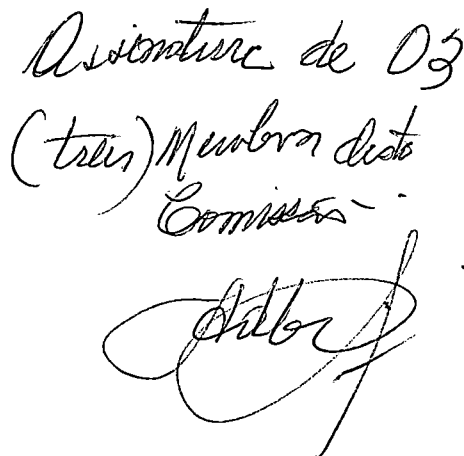 Assinatura de 03
(treis) Membros desta
Comissão.